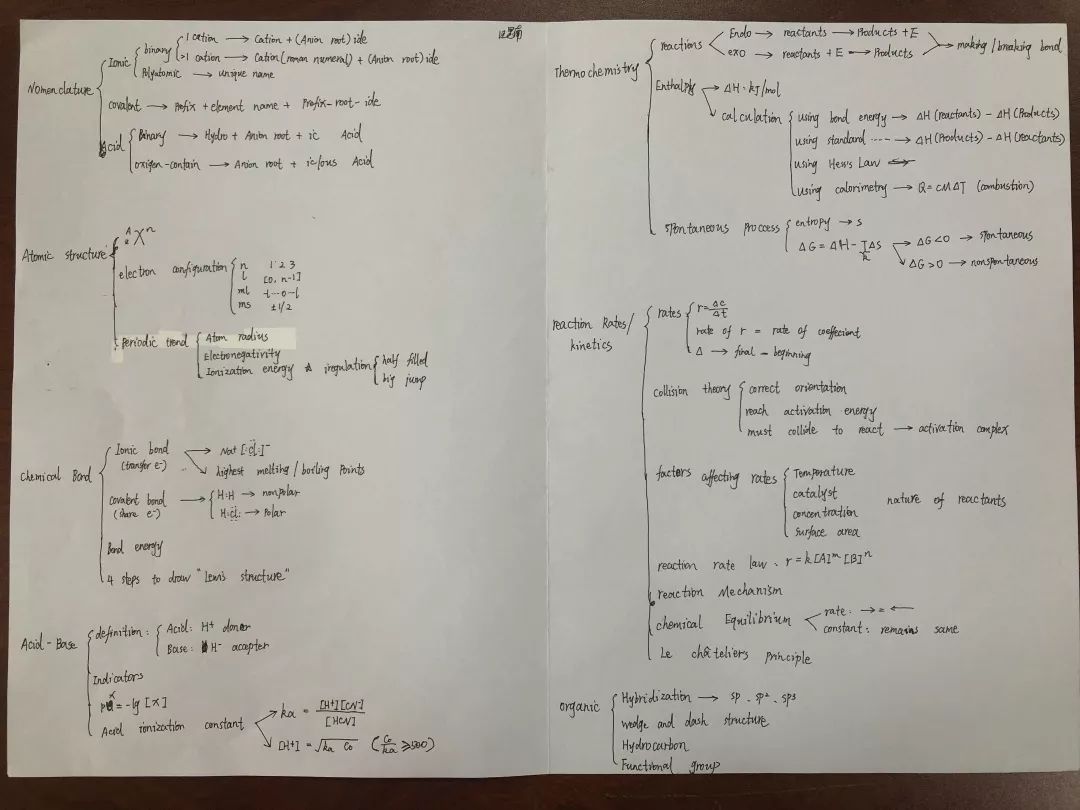 Nomenclature
Ionic
binary
1 cation → Cation + (Anion root) ide
>1 cation → Cation (roman numeral) + (Anion root) ide
Polyatomic → unique name
covalent → Prefix + element name + Prefix-root-ide
Acid
Binary → Hydro + Anion root + ic Acid
oxigen-contain → Anion root + ic/ous Acid
Atomic structure
A X n
electron configuration
n 1 2 3
l [0, n-1]
ml -l…0-l
ms ±1/2
Periodic trend
Atom radius
Electronegativity
Ionization energy ☆ iregulation
half filled
big jump
Chemical Bond
Ionic bond → Na+ [:Cl:]⁻
(transfer e⁻) highest melting / boiling Points
covalent bond → H:H → nonpolar
(share e⁻) H:Cl: → Polar
Bond energy
4 steps to draw "Lewis structure"
Acid-Base
definition:
Acid: H+ doner
Base: H- accepter
Indicators
pX = -lg [X]
Acid ionization constant
ka = [H+][CN]/[HCN]
[H+] = √ka C₀ (C₀/ka ≥500)
Thermochemistry
reactions
Endo → reactants → Products + E
exo → reactants + E → Products
making / breaking bond
Enthalpy → ΔH: kJ/mol
calculation
using bond energy → ΔH (reactants) - ΔH (Products)
using standard ---- → ΔH (Products) - ΔH (reactants)
using Hess Law
using calorimetry → Q = CMΔT (combustion)
Spontaneous Process
entropy → s
ΔG = ΔH - TΔS
k
ΔG<0 → spontaneous
ΔG>0 → nonspontaneous
reaction Rates/
kinetics
rates
r = Δc/Δt
rate of r = rate of coeffecient
Δ → final - beginning
collision theory
correct orientation
reach activation energy
must collide to react → activation complex
factors affecting rates
Temperature
catalyst
concentration
surface area
nature of reactants
reaction rate law: r = k[A]ᵐ [B]ⁿ
reaction Mechanism
chemical Equilibrium
rate: → = ←
constant: remains same
Le châteliers Principle
organic
Hybridization → sp . sp² . sp3
wedge and dash structure
Hydrocarbon
Functional group